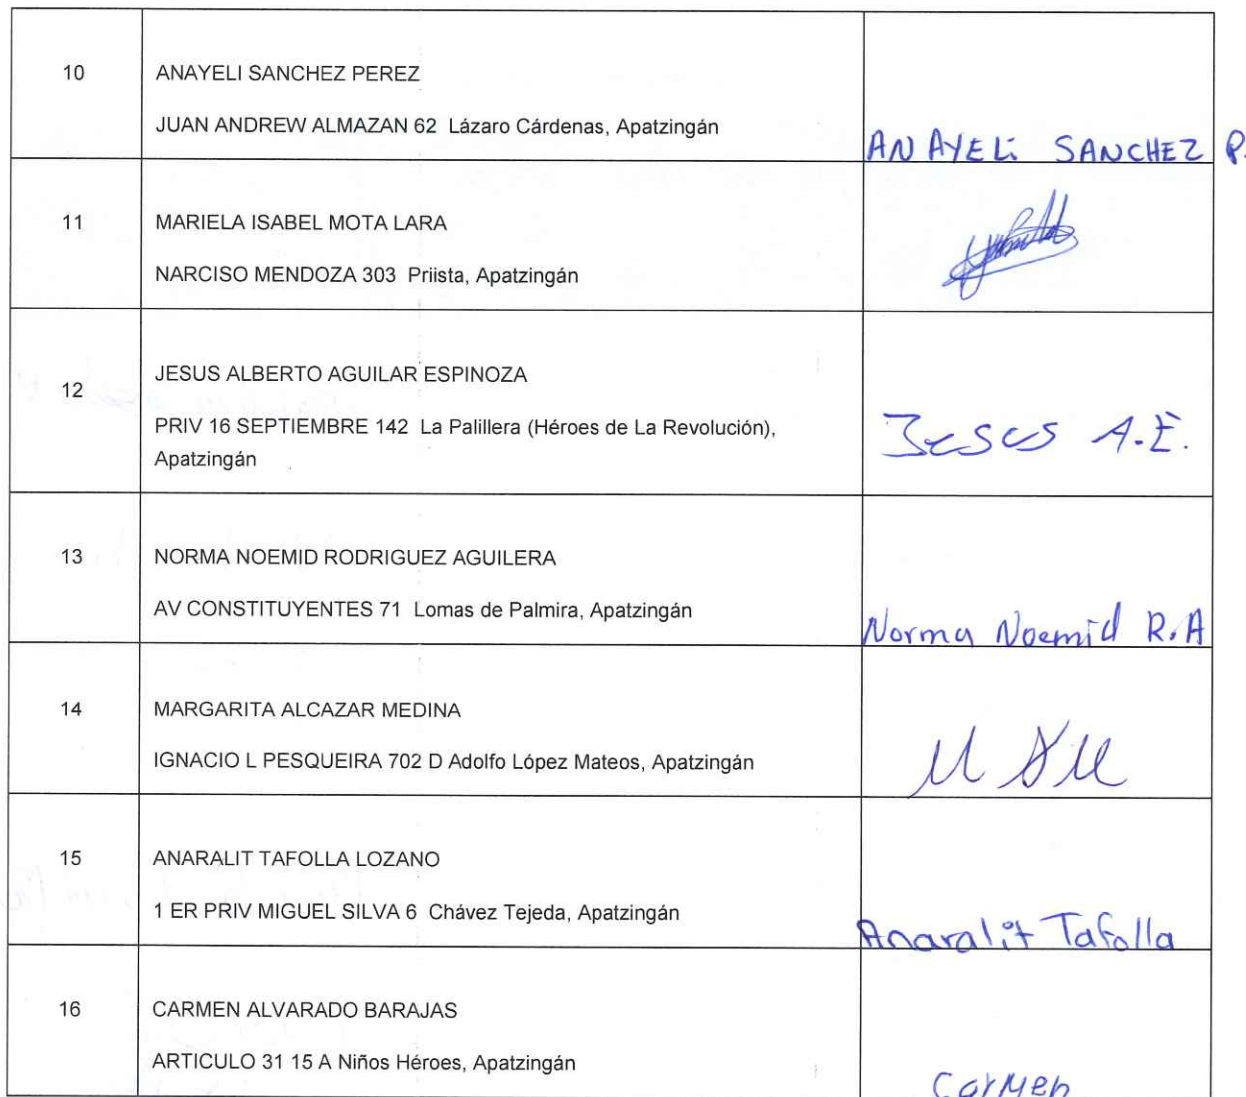 10
ANAYELI SANCHEZ PEREZ
JUAN ANDREW ALMAZAN 62 Lázaro Cárdenas, Apatzingán
ANAYELi SANCHEZ P.
11
MARIELA ISABEL MOTA LARA
NARCISO MENDOZA 303 Priista, Apatzingán
12
JESUS ALBERTO AGUILAR ESPINOZA
PRIV 16 SEPTIEMBRE 142 La Palillera (Héroes de La Revolución),
Apatzingán
Jesus A.E.
13
NORMA NOEMID RODRIGUEZ AGUILERA
AV CONSTITUYENTES 71 Lomas de Palmira, Apatzingán
Norma Noemid R.A
14
MARGARITA ALCAZAR MEDINA
IGNACIO L PESQUEIRA 702 D Adolfo López Mateos, Apatzingán
15
ANARALIT TAFOLLA LOZANO
1 ER PRIV MIGUEL SILVA 6 Chávez Tejeda, Apatzingán
Anaralit Tafolla
16
CARMEN ALVARADO BARAJAS
ARTICULO 31 15 A Niños Héroes, Apatzingán
Carmen